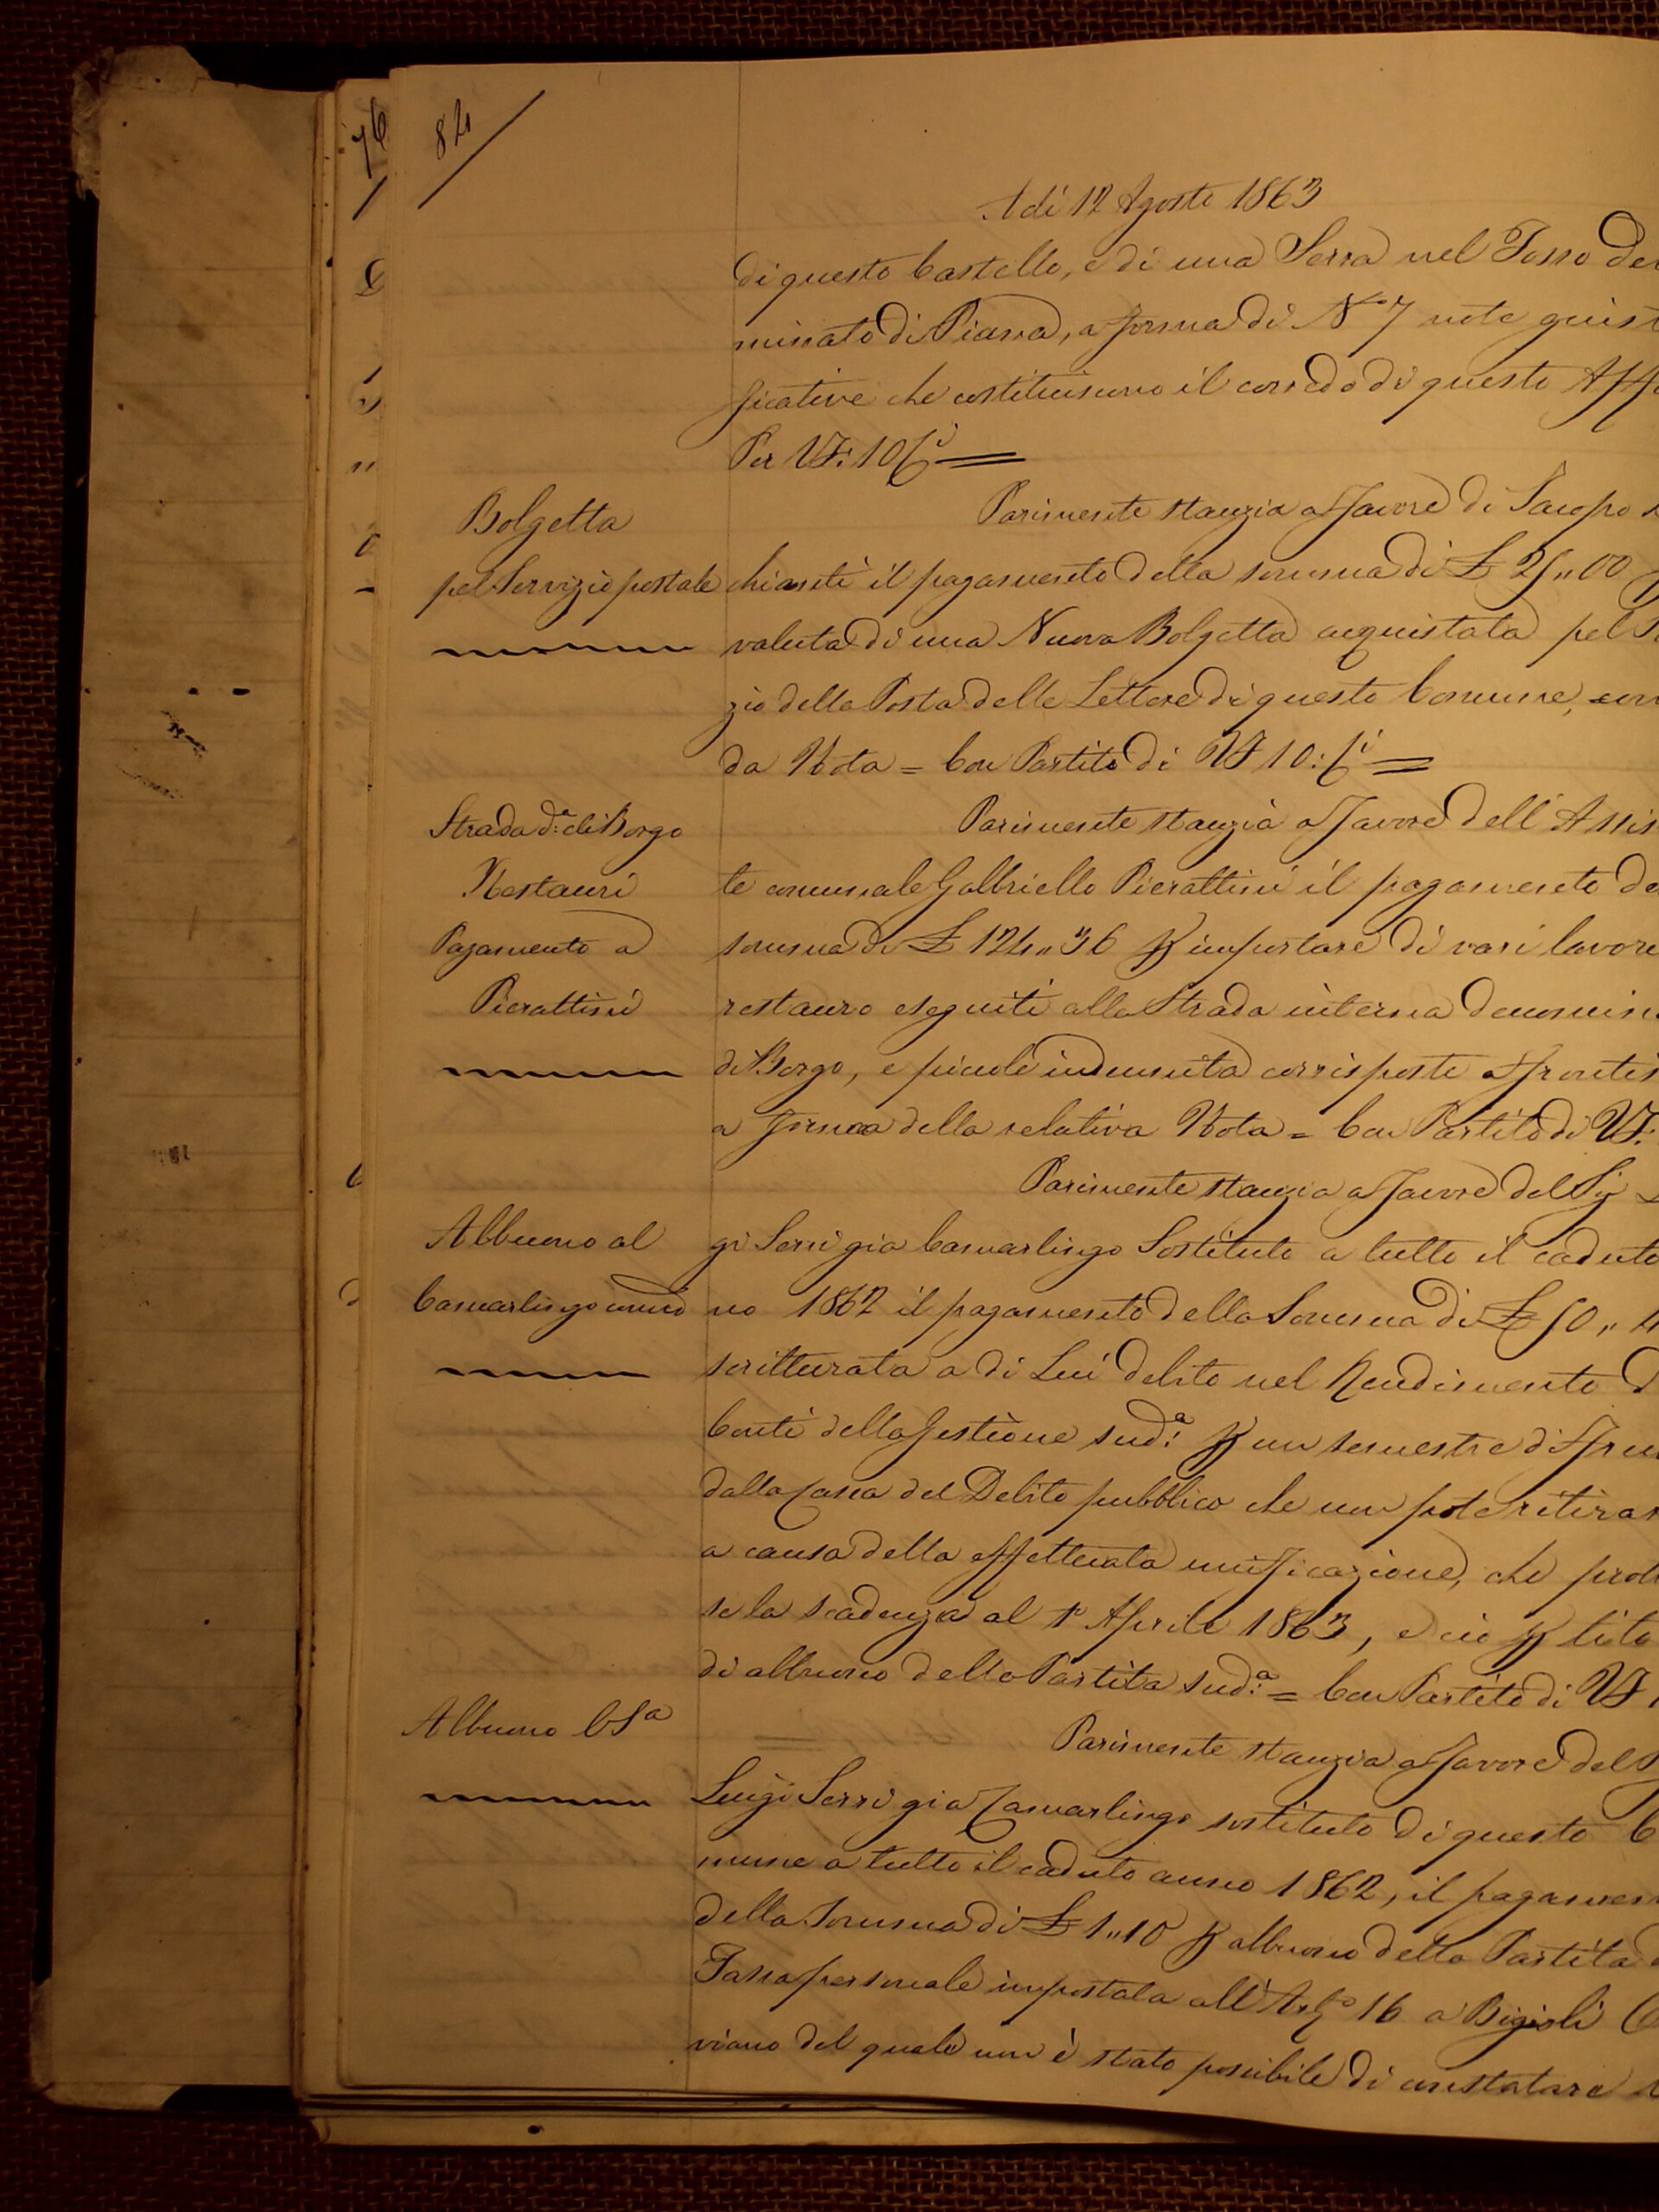 84
76
A dì 12 Agosto 1863
di questo Castello, e di una Serra nel Fosso
minato di Piana, a forma di N° 7 note
ficative che costituiscono il corredo di questo
Per VF: 10 Sì =
Bolgetta
pel Servizio postale
Parimente stanzia a favore di Jacopo
chianti il pagamento della somma di £ 25,,00
valuta di una Nuova Bolgetta acquistata pel
zio della Posta delle Lettere di questo Comune,
da Nota = Con Partito di VF 10: Sì =
Strada d.ª di Borgo
Restauri
Pagamento a
Pierattini
Parimente stanzia a favore dell'
te comunale Gabbriello Pierattini il pagamento
somma di £ 124,,36 p importare di vari
restauro eseguiti alla Strada interna
di Borgo, e piccole indennità corrisposte a
a forma della relativa Nota = Con Partito di VF:
Abbuono al
Camarlingo
Parimente stanzia a favore del Sig
gi Serri già Camarlingo Sostituto a tutto il caduto
no 1862 il pagamento della Somma di £ 50,, 4
scritturata a di Lui debito nel Rendimento
Conti della Gestione sud.ª p un semestre di
dalla Cassa del Debito pubblico che non potè
a causa della effettuata unificazione, che
se la scadenza al 1° Aprile 1863, e ciò p
di abbuono della Partita sud.ª = Con Partito di VF
Abbuono C Sª
Parimente stanzia a favore del
Luigi Serri già Camarlingo sostituto di questo
mune a tutto il caduto anno 1862, il
della Somma di £ 1,,10 p abbuono della Partita
Tassa personale impostata all'Artº 16 a Bigioli
viano del quale non è stato possibile di constatare